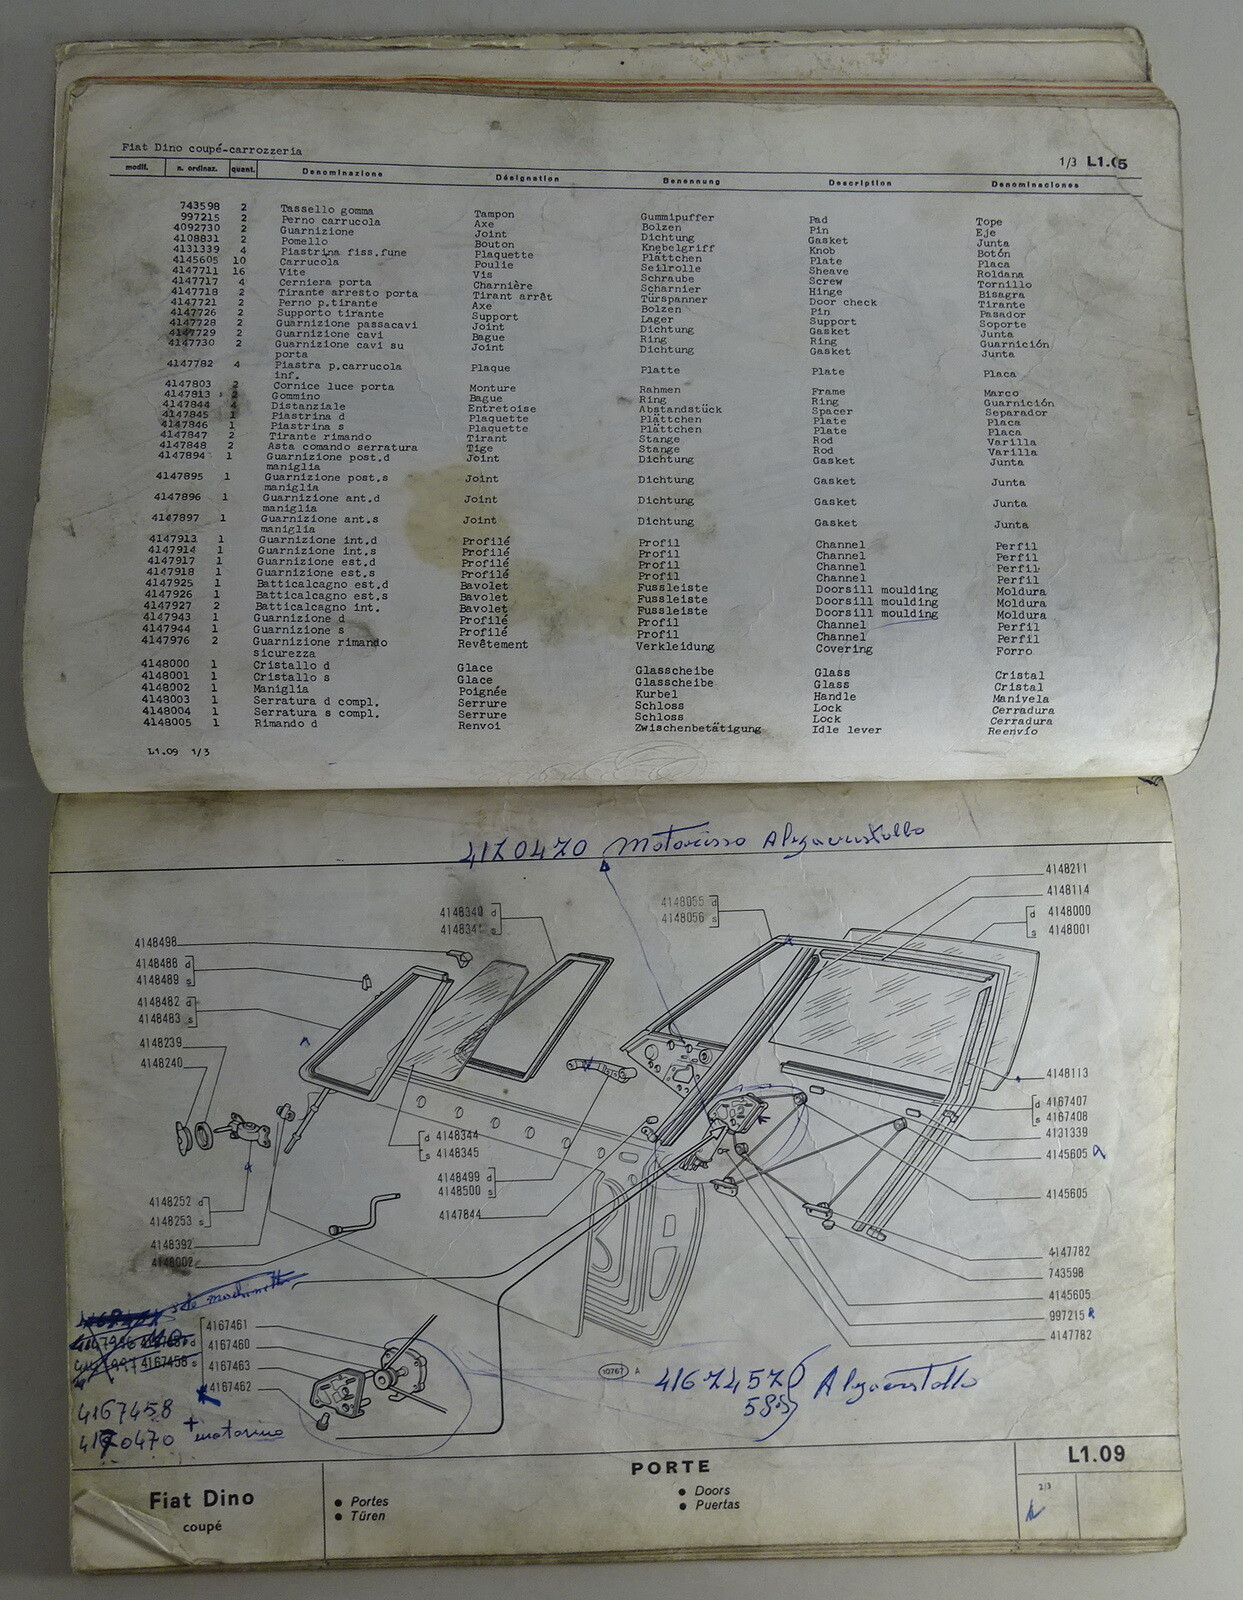 Fiat Dino coupé-carrozzeria
1/3 L1.05
modif. n. ordinaz. quant. Denominazione Désignation Benennung Description Denominaciones
743598 2 Tassello gomma Tampon Gummipuffer Pad Tope
997215 2 Perno carrucola Axe Bolzen Pin Eje
4092730 2 Guarnizione Joint Dichtung Gasket Junta
4108831 2 Pomello Bouton Knebelgriff Knob Botón
4131339 4 Piastrina fiss.fune Plaquette Plättchen Plate Placa
4145605 10 Carrucola Poulie Seilrolle Sheave Roldana
4147711 16 Vite Vis Schraube Screw Tornillo
4147717 4 Cerniera porta Charnière Scharnier Hinge Bisagra
4147718 2 Tirante arresto porta Tirant arrêt Türspanner Door check Tirante
4147721 2 Perno p.tirante Axe Bolzen Pin Pasador
4147726 2 Supporto tirante Support Lager Support Soporte
4147728 2 Guarnizione passacavi Joint Dichtung Gasket Junta
4147729 2 Guarnizione cavi Bague Ring Ring Guarnición
4147730 2 Guarnizione cavi su Joint Dichtung Gasket Junta
porta
4147782 4 Piastra p.carrucola Plaque Platte Plate Placa
inf.
4147803 2 Cornice luce porta Monture Rahmen Frame Marco
4147813 2 Gommino Bague Ring Ring Guarnición
4147844 4 Distanziale Entretoise Abstandstück Spacer Separador
4147845 1 Piastrina d Plaquette Plättchen Plate Placa
4147846 1 Piastrina s Plaquette Plättchen Plate Placa
4147847 2 Tirante rimando Tirant Stange Rod Varilla
4147848 2 Asta comando serratura Tige Stange Rod Varilla
4147894 1 Guarnizione post.d Joint Dichtung Gasket Junta
maniglia
4147895 1 Guarnizione post.s Joint Dichtung Gasket Junta
maniglia
4147896 1 Guarnizione ant.d Joint Dichtung Gasket Junta
maniglia
4147897 1 Guarnizione ant.s Joint Dichtung Gasket Junta
maniglia
4147913 1 Guarnizione int.d Profilé Profil Channel Perfil
4147914 1 Guarnizione int.s Profilé Profil Channel Perfil
4147917 1 Guarnizione est.d Profilé Profil Channel Perfil
4147918 1 Guarnizione est.s Profilé Profil Channel Perfil
4147925 1 Batticalcagno est.d Bavolet Fussleiste Doorsill moulding Moldura
4147926 1 Batticalcagno est.s Bavolet Fussleiste Doorsill moulding Moldura
4147927 2 Batticalcagno int. Bavolet Fussleiste Doorsill moulding Moldura
4147943 1 Guarnizione d Profilé Profil Channel Perfil
4147944 1 Guarnizione s Profilé Profil Channel Perfil
4147976 2 Guarnizione rimando Revêtement Verkleidung Covering Forro
sicurezza
4148000 1 Cristallo d Glace Glasscheibe Glass Cristal
4148001 1 Cristallo s Glace Glasscheibe Glass Cristal
4148002 1 Maniglia Poignée Kurbel Handle Manivela
4148003 1 Serratura d compl. Serrure Schloss Lock Cerradura
4148004 1 Serratura s compl. Serrure Schloss Lock Cerradura
4148005 1 Rimando d Renvoi Zwischenbetätigung Idle lever Reenvío
L1.09 1/3
4170470 motorino Alzacristallo
4148211
4148114
d 4148000
s 4148001
4148055 d
4148056 s
4148340 d
4148341 s
4148498
4148488 d
4148489 s
4148482 d
4148483 s
4148239
4148240
4148113
d 4167407
s 4167408
4131339
4145605
4145605
d 4148344
s 4148345
4148499 d
4148500 s
4147844
4148252 d
4148253 s
4148392
4148002
4147782
743598
4145605
997215
4147782
4167461
4167460
4167463
4167462
4167458 s
10767 A
4167457
58 Alzacristallo
4167458
4170470 + motorino
Fiat Dino
coupé
Portes
Türen
PORTE
Doors
Puertas
L1.09
2/3